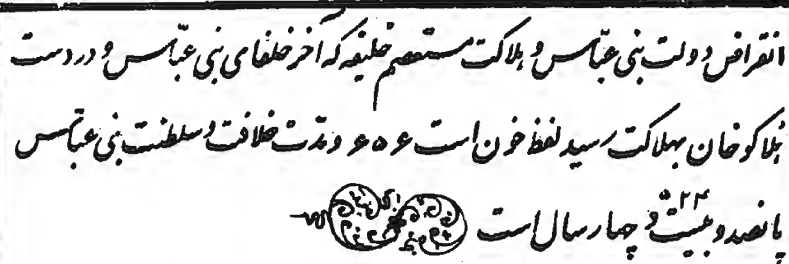 انقراض دولت بنی عباس و هلاکت مستعصم خلیفه که آخر خلفای بنی عباس و در دست
هلاکو خان بهلاکت رسید لفظ خون است ۶۵۶ و مدت خلافت و سلطنت بنی عباس
پانصد و بیست و چهار سال است ۵۲۴